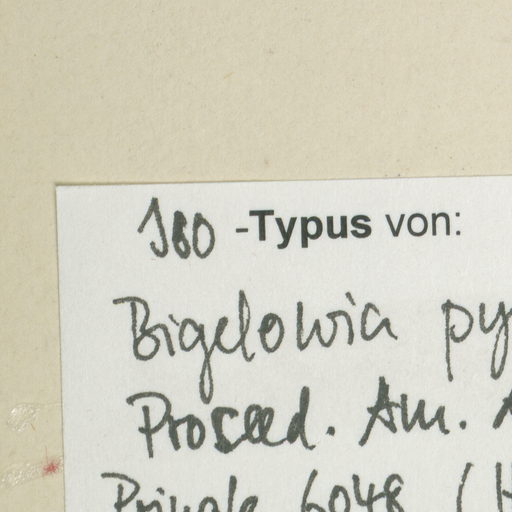 Iso -Typus von:
Bigelowia py
Proceed. Am. A
Pringle 6048 (H